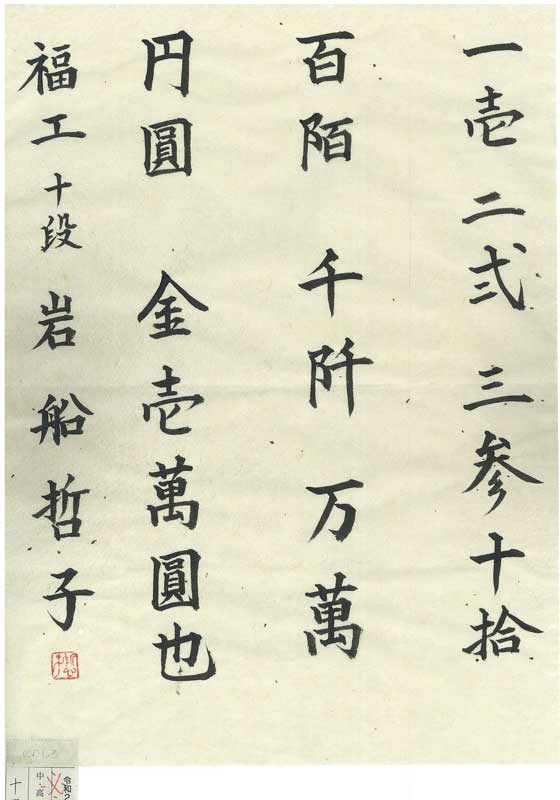 一壱 二弐 三参 十拾
百陌 千阡 万萬
円圓 金壱萬圓也
福工 十段 岩船哲子
令和2
中・高
十